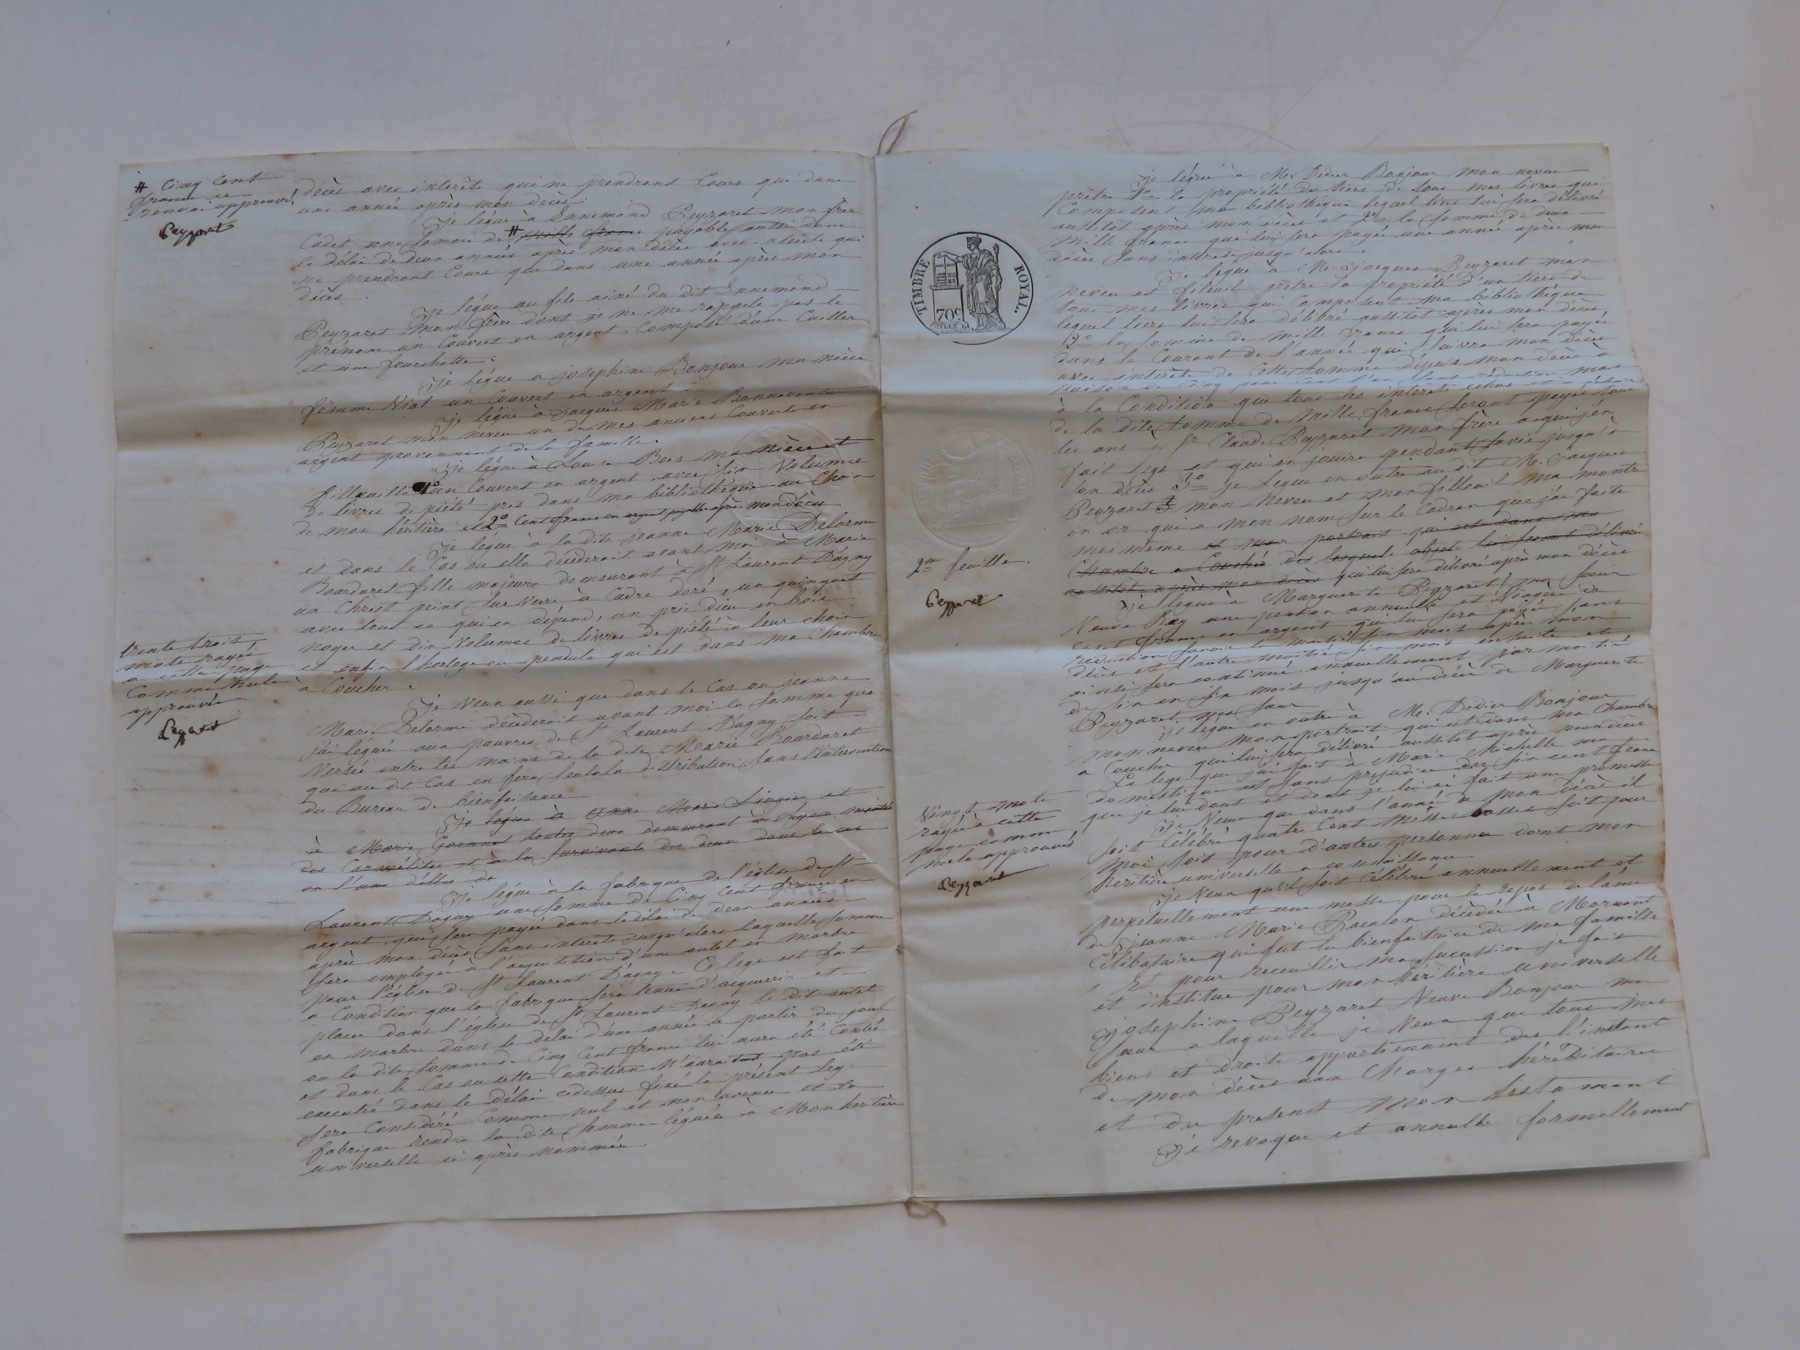 # cinq cent
francs ce
renvoi approuvé
Peyzaret
décès avec intérêts qui ne prendront Cours que dans
une année après mon décès.
Je lègue à Ennemond Peyzaret mon frère
Cadet une somme de # mille francs payable aussi dans
le délai de deux années après mon décès avec intérêts qui
ne prendront Cours que dans une année après mon
décès.
Je lègue au fils ainé du dit Ennemond
Peyzaret mon frère dont je ne me rappele pas le
prénom un Couvert en argent, Composé d'une Cuiller
et une fourchette.
Je lègue a josephine Bonjour ma nièce
femme Viral un Couvert en argent
Je lègue à Jacques Marie Bonnaventure
Peyzaret mon neveu un de mes anciens Couverts en
argent provenant de la famille.
Je lègue à Louise Bois ma nièce et
filleulle 1º un Couvert en argent avec six Volumes
de livres de piété pris dans ma bibliothèque au Choix
de mon héritière et 2º Cent francs en argent payable après mon décès
Je lègue à la dite jeanne Marie Delorme
et dans le Cas ou elle décéderoit avant moi à Marie
Bourdaret fille majeure demeurant à St Laurent D'agny
un Christ peint sur verre à Cadre doré, un quinquet
avec tout ce qui en dépend, un prie Dieu en bois
noyer et dix Volumes de livres de piété à leur choix
et enfin l'horloge ou pendule qui est dans ma Chambre
à Coucher.
trente trois
mots rayés
a cette page
Comme nuls
approuvés
Peyzaret
Je veux aussi que dans le Cas ou jeanne
Marie Delorme décéderoit avant moi la somme que
j'ai léguée aux pauvres de St Laurent D'agny soit
Versée entre les mains de la dite Marie Bourdaret
qui au dit Cas en fera seule la distribution sans l'intervention
du Bureau de bienfaisance
Je lègue à Anne Marie et
à Marie toutes deux demeurant à Lyon montée
des Carmélites et à la survivante des deux dans le cas
ou l'une d'elles de
Je lègue à la fabrique de l'église de St
Laurent D'agny une somme de Cinq Cent francs en
argent qui sera payée dans le délai de deux années
après mon décès, sans intérêts jusqu'alors laquelle somme
sera employée à l'acquisition d'une autel en marbre
pour l'église de St Laurent D'agny. Ce legs est fait
a Condition que la fabrique sera tenue d'acquerir et
placer dans l'église de St Laurent Dagny le dit autel
en marbre dans le délai d'une année à partir du jour
ou la dite somme de Cinq Cent francs lui aura été Comtée
et dans le Cas ou cette Condition n'aura pas été
executée dans le délai cidessus fixé le présent legs
sera Considéré Comme nul et non avenu et la
fabrique rendra la dite somme léguée a Mon héritière
universelle ci après nommée
TIMBRE ROYAL
70c
2me feuille.
Peyzaret
Je lègue à Mr Didier Bonjour mon neveu
prêtre 1º la propriété du tiers de tous mes livres qui
Composent ma bibliothèque lequel tiers lui sera délivré
aussitôt après mon décès et 2º la somme de deux
mille francs qui lui sera payé une année après mon
décès sans intérêts jusqu'alors.
Je lègue à Mr Jacques Peyzaret mon
neveu et filleul prêtre la propriété d'un tiers de
tous mes livres qui Composent ma bibliothèque
lequel tiers lui sera délivré aussitot après mon décès,
2º la somme de mille francs qui lui sera payée
dans le Courant de l'année qui suivra mon décès
avec intérêts de Cette somme depuis mon décès à
raison de Cinq pour Cent l'an sans réduction mais
à la Condition que tous les intérêts echus et a echoir
de la dite somme de mille francs seront payés tous
les ans à Sr Claude Peyzaret mon frère a qui j'en
fait legs et qui en jouira pendant sa vie jusqu'à
son décès 3º je Lègue en outre au dit Mr Jacques
Peyzaret mon neveu et mon filleul ma montre
en or qui a mon nom sur le Cadran que j'ai faite
moi même et mon portrait qui est dans ma
Chambre a Coucher les lequels objets lui seront délivrés
aussitot après mon décès qui lui sera délivré après mon décès
Je lègue à Marguerite Peyzaret ma soeur
Veuve Rey une pension annuelle et Viagère de
cent francs en argent qui lui sera payé sans
réduction savoir la moitié six mois après mon
décès et l'autre moitié six mois ensuite et
ainsi sera continué annuellement par moitié
de six en six mois jusqu'au décès de Marguerite
Peyzaret ma soeur
Je lègue en outre à Mr Didier Bonjour
mon neveu mon portrait qui est dans ma Chambre
a Coucher qui lui sera délivré aussitot après mon décès
Le legs que j'ai fait à Marie Michelle ma
domestique est sans préjudice des six cent francs
que je lui dois et dont je lui ai fait une promesse
Je Veux que dans l'année de mon décès il
soit Célébré quatre Cent Messes basses soit pour
moi soit pour d'autres personnes dont mon
héritière universelle a connaissance.
Vingt mots
rayés à cette
page comme
nuls approuvés
Peyzaret
Je Veux qu'il soit célébré annuellement et
perpetuellement une messe pour le repos de l'ame
de Jeanne Marie Pacalon décédée à Mornant
Célibataire qui fut la bienfaitrice de ma famille
Et pour recueillir ma succession je fait
et institue pour mon héritière universelle
Josephine Peyzaret Veuve Bonjour ma
soeur a laquelle je Veux que tous mes
biens et droits appartiennent des l'instant
de mon décès aux Charges héréditaires
et du présent mon testament
Je revoque et annulle formellement